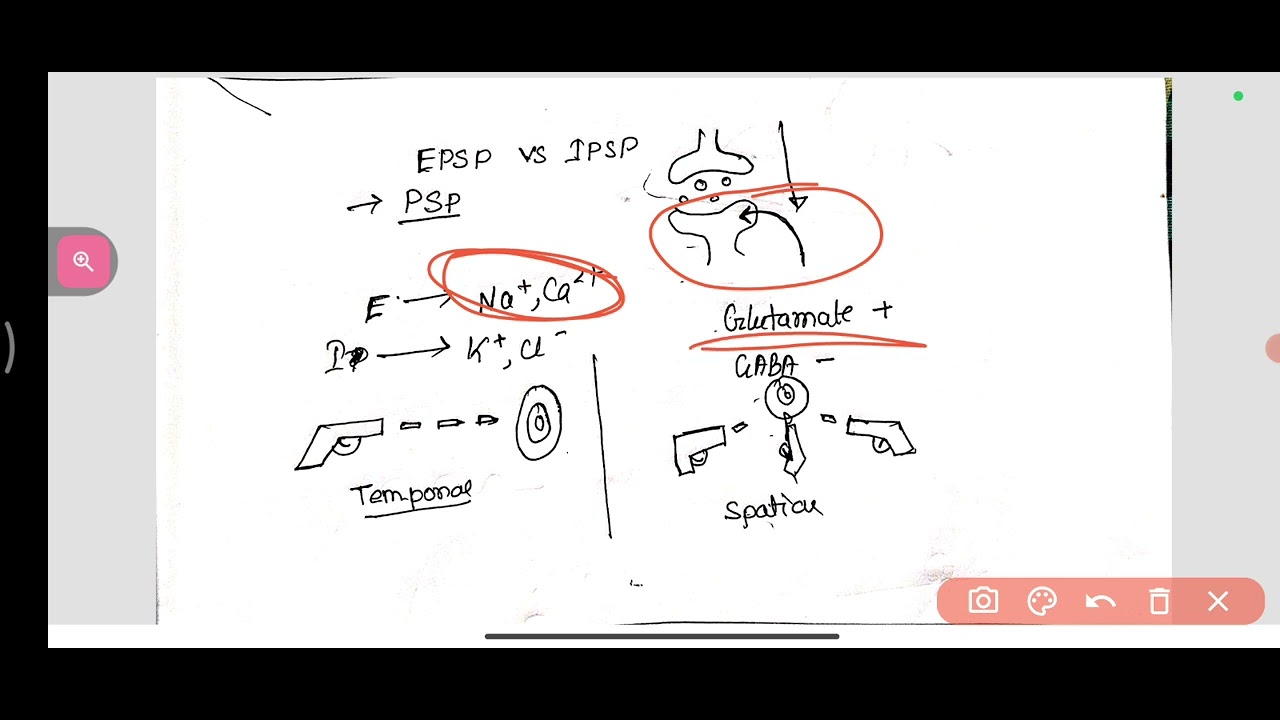 EPSP vs IPSP
→ PSP
E → Na⁺, Ca²⁺
I → K⁺, Cl⁻
Glutamate +
GABA −
Temporal
Spatial